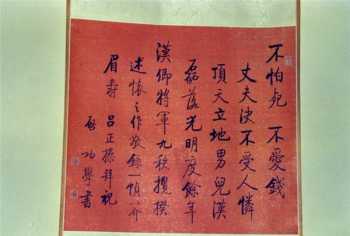 不怕死 不愛錢
丈夫決不受人憐
頂天立地男兒漢
磊落光明度餘年
漢卿將軍九秩攬揆
述懷之作敬錄一幀以介
眉壽 呂正操拜祝
啟功學書